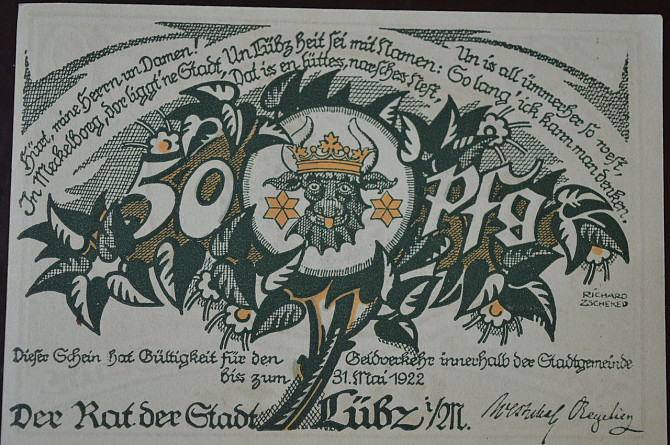 Höret, mine Herrn un Damen!
In Meckelborg, dor liggt 'ne Stadt,
Un Lübz heit sei mit Namen:
Dat is en lüttes, narsches Nest,
Un is all ümmerher so west,
So lang' ick kann man denken.
50 Pfg
RICHARD
ZSCHEKED
Dieser Schein hat Gültigkeit für den Geldverkehr innerhalb der Stadtgemeinde
bis zum 31. Mai 1922
Der Rat der Stadt Lübz i/M.